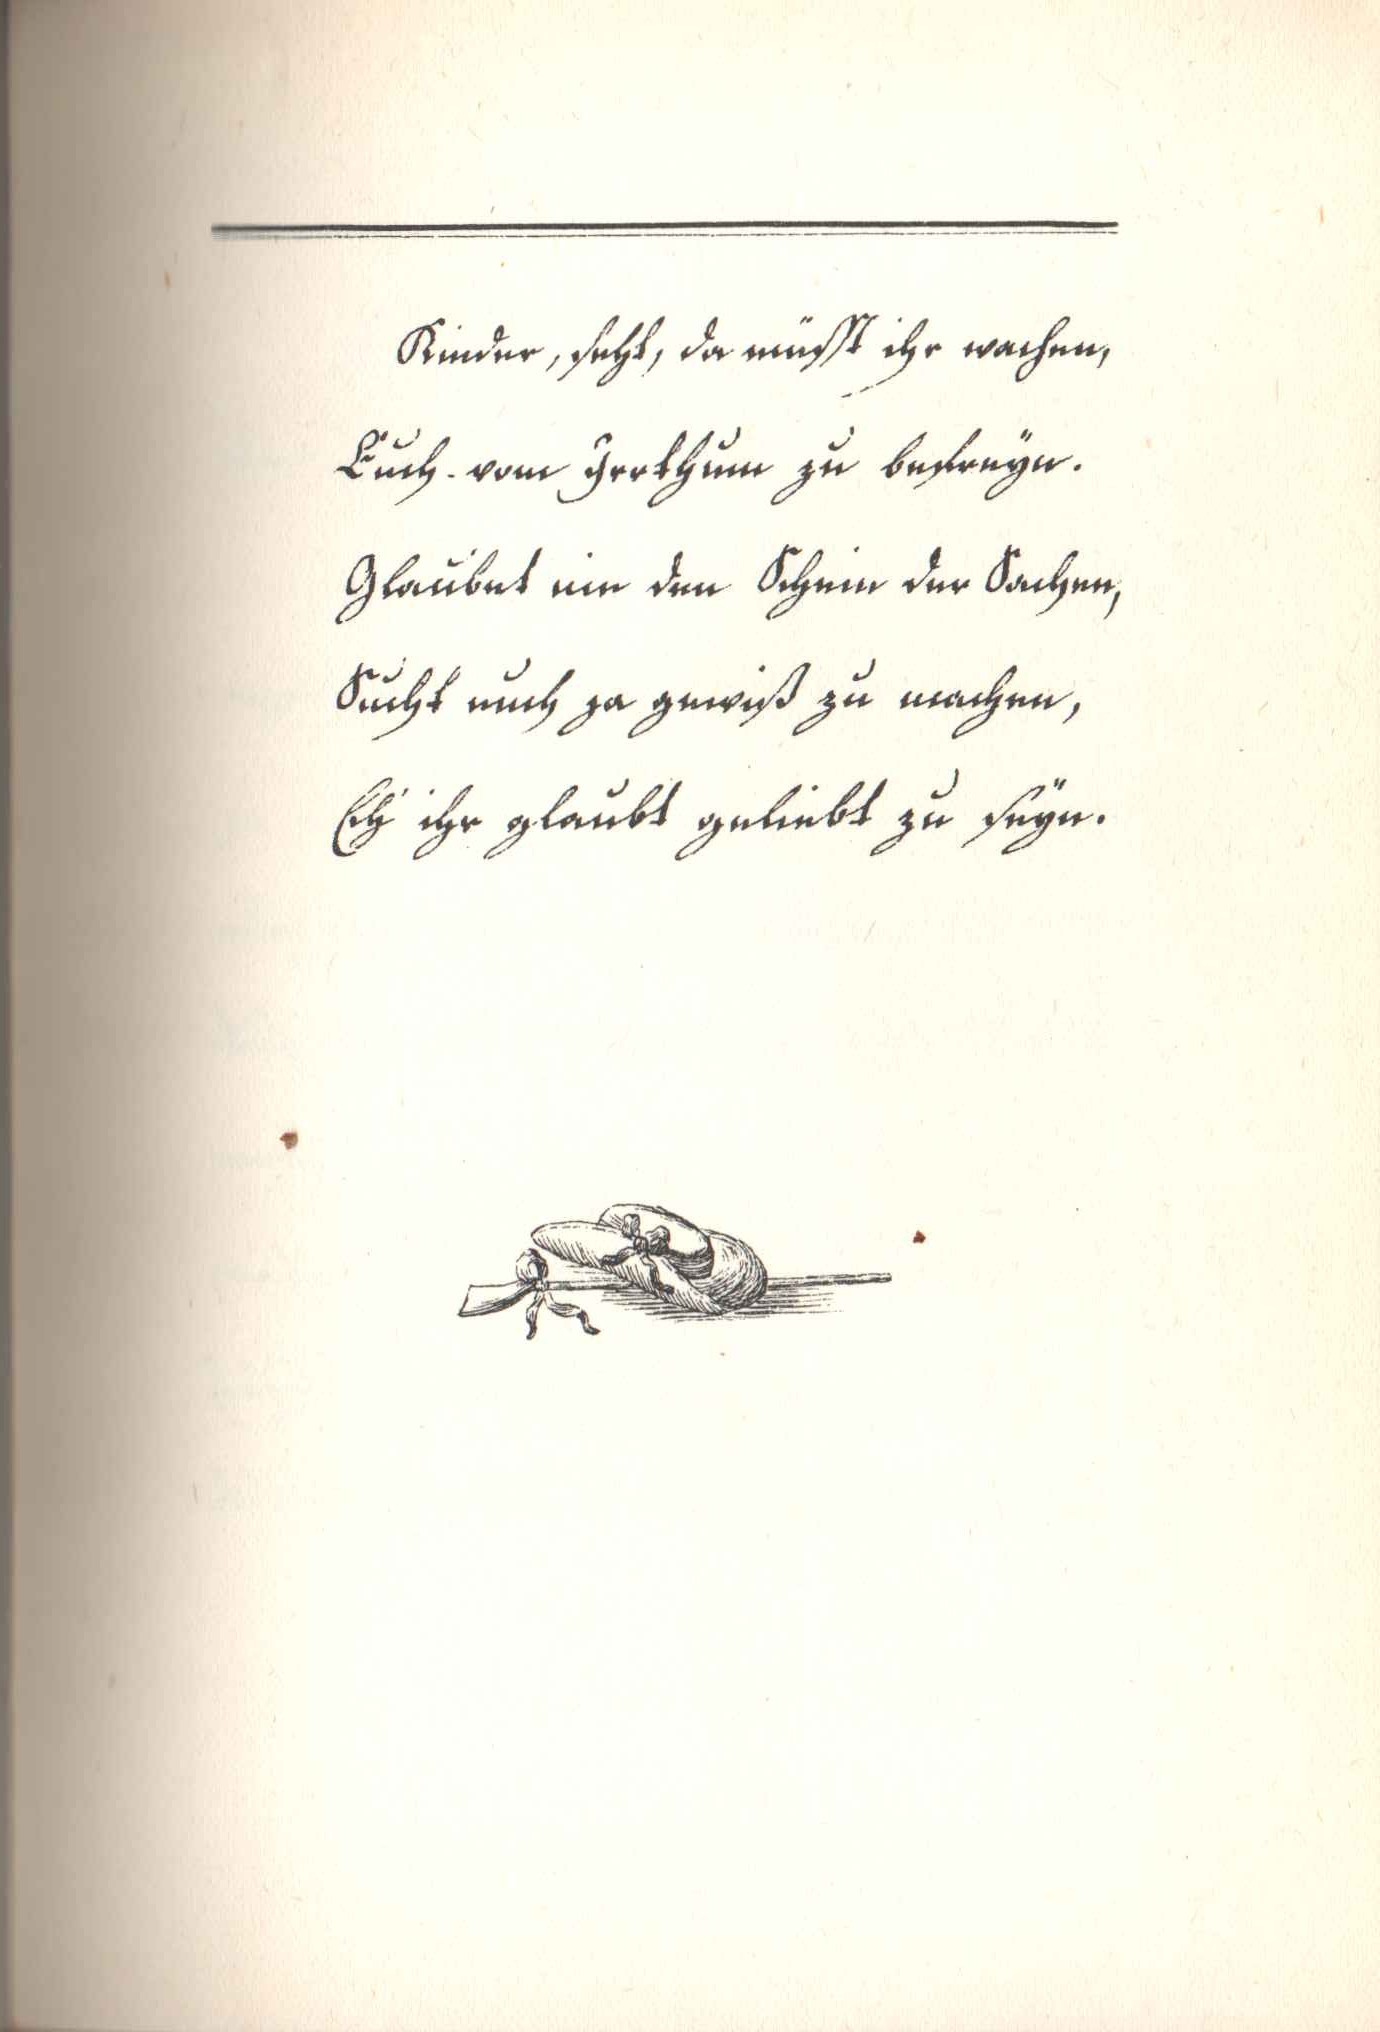 Kinder, seht, da müsst ihr wachen,
Euch vom Irrthum zu befreÿn.
Glaubet nie den Schein der Sachen,
Sucht euch ja gewiß zu machen,
Eh' ihr glaubt geliebt zu seÿn.